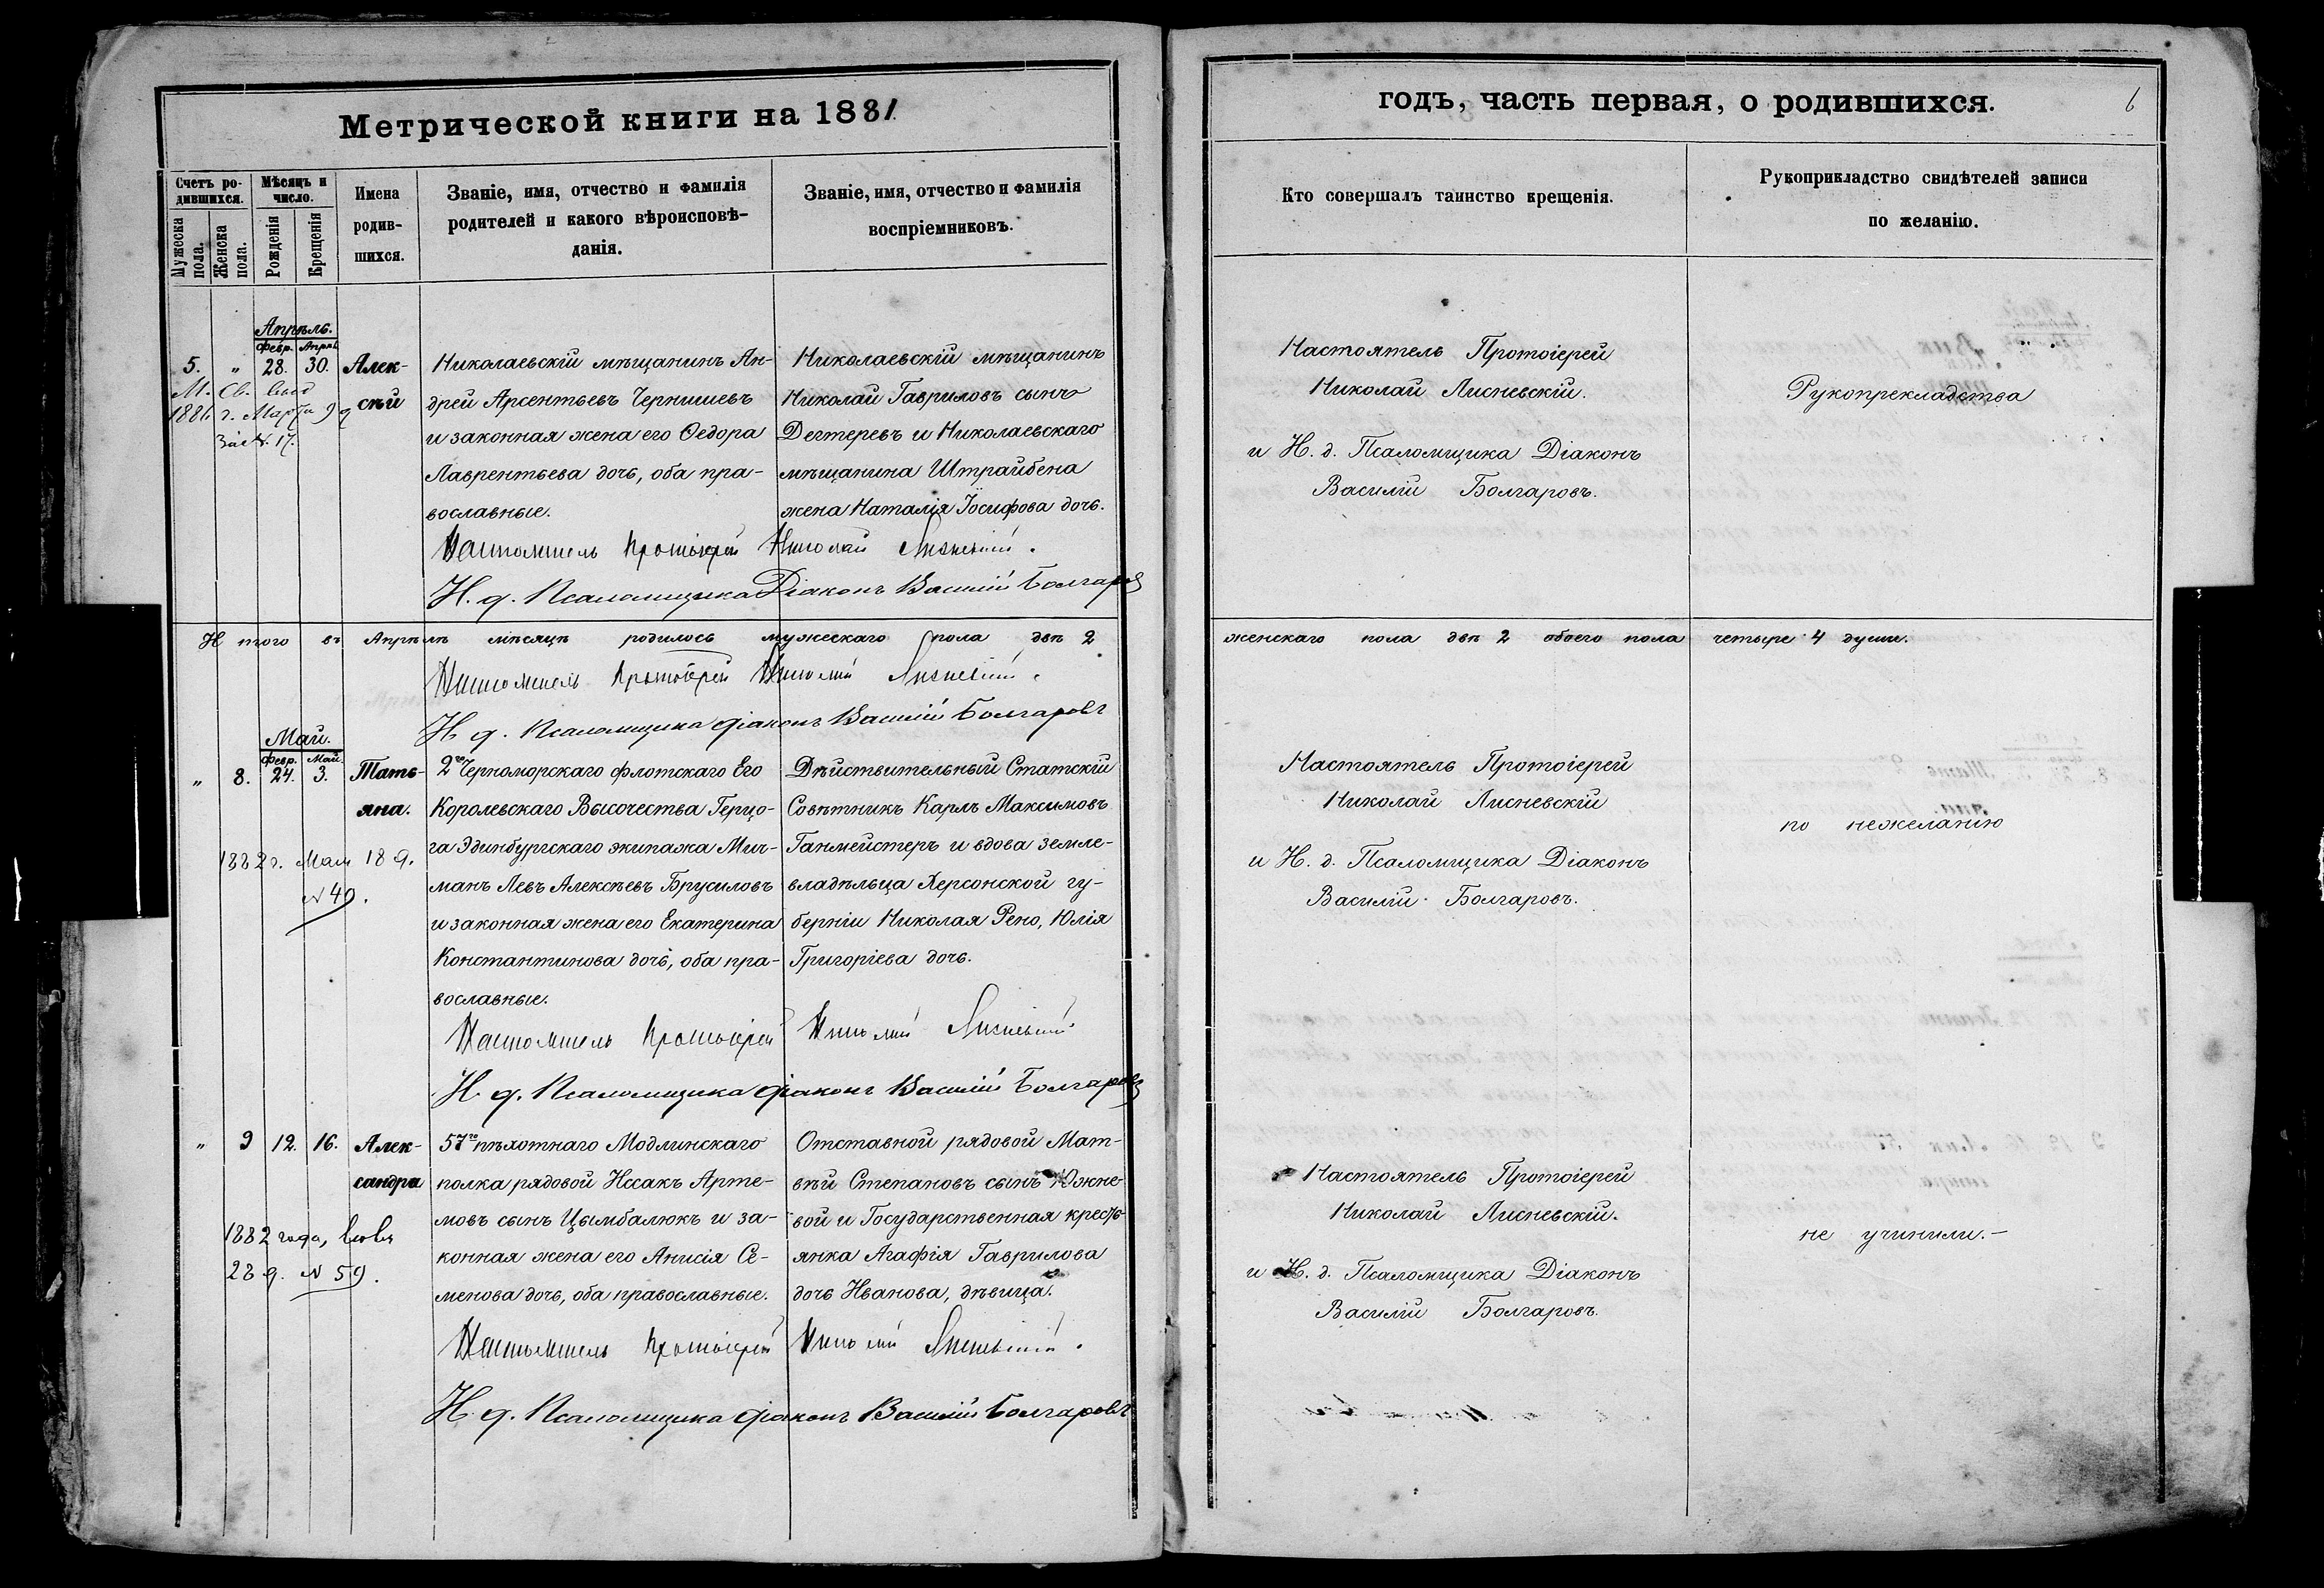 Метрической книги на 1881.
Счетъ ро-
дившихся.
Мужеска пола.
Женска пола.
Мѣсяцъ и
число.
Рожденія
Крещенія
Имена
родив-
шихся.
Званіе, имя, отчество и фамилія
родителей и какого вѣроисповѣ-
данія.
Званіе, имя, отчество и фамилія
воспріемниковъ.
Апрѣль.
Февр. Апрѣл.
5. " 28. 30. Алек-
сѣй
М. Св. выд
1881 г. Марта 9 д
За № 17.
Николаевскій мѣщанинъ Ан-
дрей Арсентьевъ Чернишевъ
и законная жена его Ѳедора
Лаврентьева дочь, оба пра-
вославные.
Николаевскій мѣщанинъ
Николай Гавриловъ сынъ
Дегтеревъ и Николаевскаго
мѣщанина Штрайбена
жена Наталія Іосифова дочь.
Настоятель Протоіерей Николай Лисневскій.
И. д. Псаломщика Діаконъ Василій Болгаровъ
Итого въ Апрѣлѣ мѣсяцѣ родилось мужескаго пола двѣ 2
Настоятель Протоіерей Николай Лисневскій.
И. д. Псаломщика діаконъ Василій Болгаровъ
Май.
Февр. Май.
" 8. 24. 3. Тать-
яна.
1882 г. Мая 18 д.
№ 40.
2го Черноморскаго флотскаго Его
Королевскаго Высочества Герцо-
га Эдинбургскаго экипажа Мич-
манъ Левъ Алексѣевъ Брусиловъ
и законная жена его Екатерина
Константинова дочь, оба пра-
вославные.
Дѣйствительный Статскій
Совѣтникъ Карлъ Максимовъ
Ганмейстеръ и вдова земле-
владѣльца Херсонской гу-
берніи Николая Рено, Юлія
Григоріева дочь.
Настоятель Протоіерей Николай Лисневскій
И. д. Псаломщика діаконъ Василій Болгаровъ
" 9 12. 16. Алек-
сандра
1882 года,
28 д. № 59.
57го пѣхотнаго Модлинскаго
полка рядовой Исаакъ Арте-
мовъ сынъ Цымбалюкъ и за-
конная жена его Анисія Се-
менова дочь, оба православные.
Отставной рядовой Мат-
вѣй Степановъ сынъ Южне-
вой и Государственная кресть-
янка Агафія Гаврилова
дочь Иванова, дѣвица.
Настоятель Протоіерей Николай Лисневскій.
И. д. Псаломщика діаконъ Василій Болгаровъ
годъ, часть первая, о родившихся.
6
Кто совершалъ таинство крещенія.
Рукоприкладство свидѣтелей записи
по желанію.
Настоятель Протоіерей
Николай Лисневскій.
и И. д. Псаломщика Діаконъ
Василій Болгаровъ.
Рукопрекладства
женскаго пола двѣ 2 обоего пола четыре 4 души.
Настоятель Протоіерей
Николай Лисневскій
и И. д. Псаломщика Діаконъ
Василій Болгаровъ.
по нежеланію
Настоятель Протоіерей
Николай Лисневскій.
и И. д. Псаломщика Діаконъ
Василій Болгаровъ.
не учинили.-